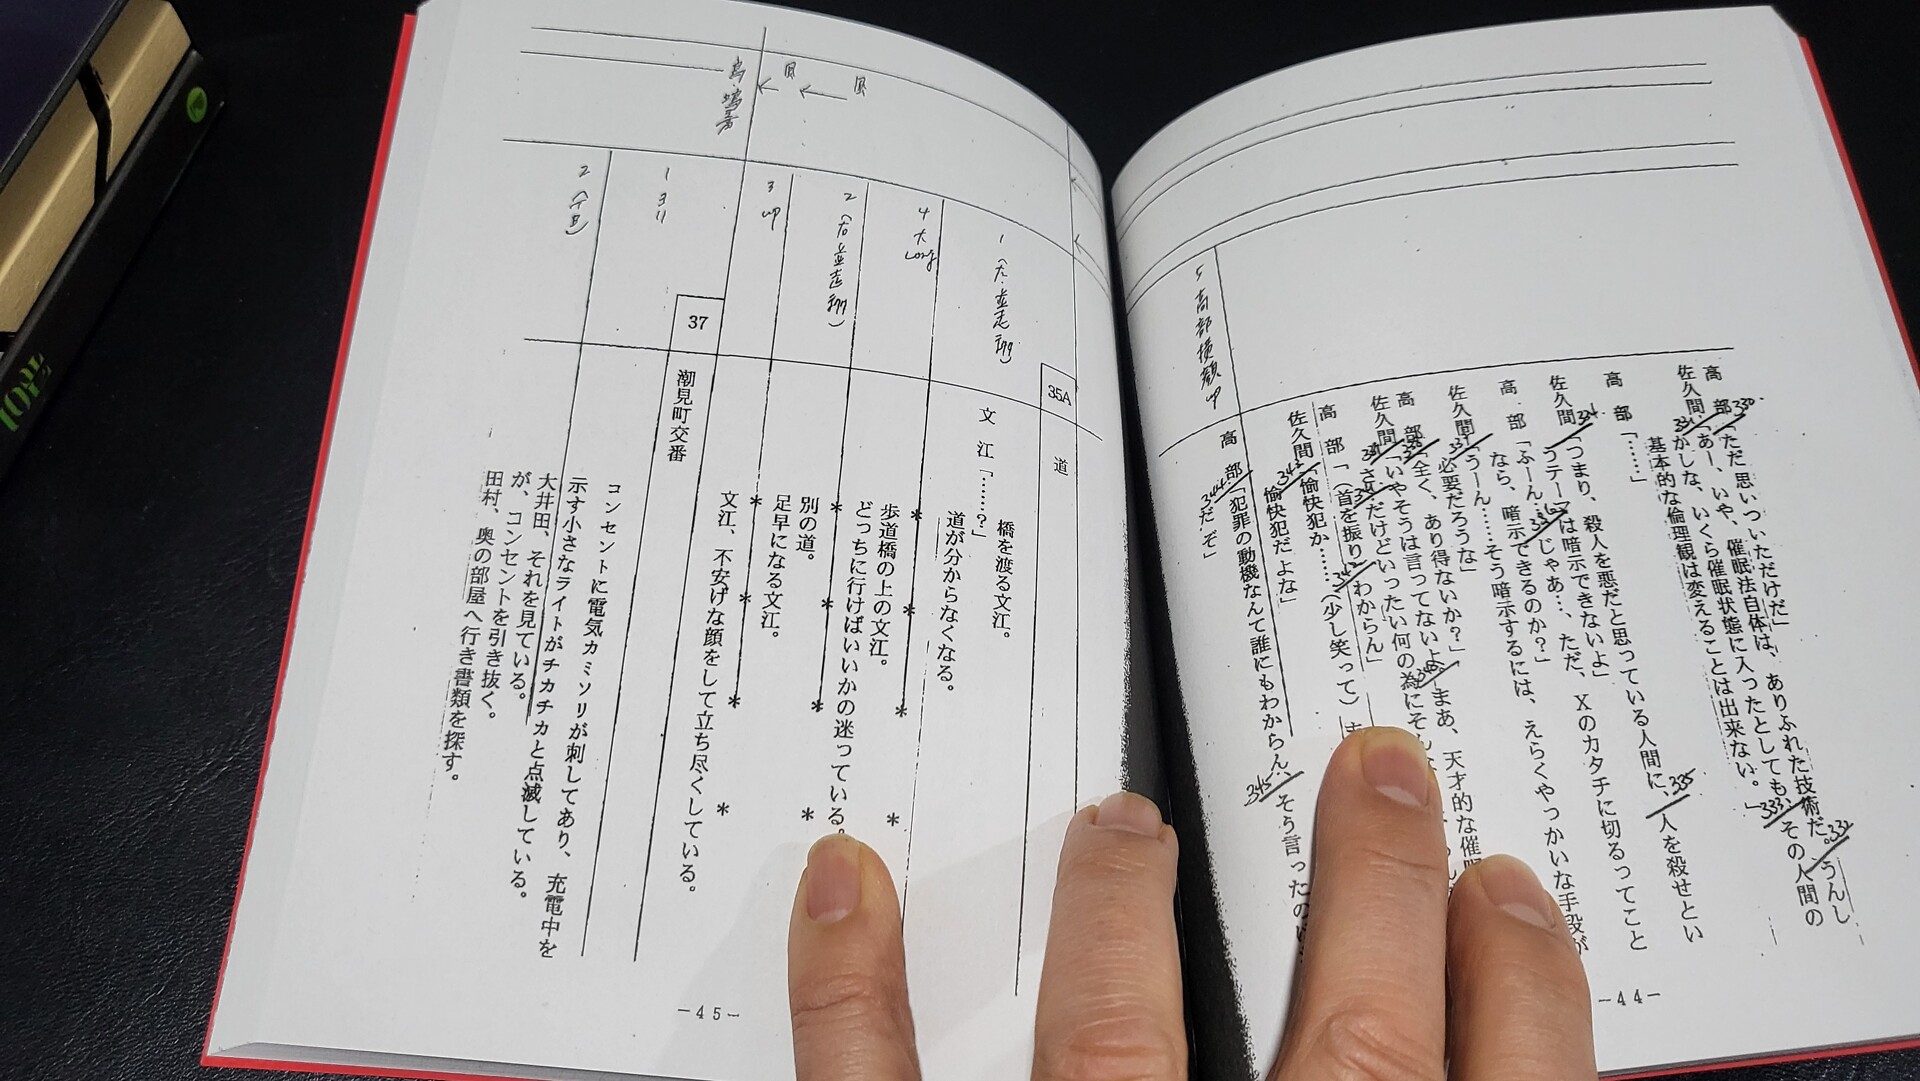 高部「ただ思いついただけだ」
佐久間「あー、いや、催眠法自体は、ありふれた技術だ。うんし
かしな、いくら催眠状態に入ったとしても、その人間の
基本的な倫理観は変えることは出来ない。」
高部「……」
佐久間「つまり、殺人を悪だと思っている人間に、人を殺せとい
うテーマは暗示できないよ」
高部「ふーん…じゃあ…、ただ、Xのカタチに切るってこと
なら、暗示できるのか?」
佐久間「うーん……そう暗示するには、えらくやっかいな手段が
必要だろうな」
高部「全く、あり得ないか?」
佐久間「いやそうは言ってないよ まあ、天才的な催眠
さ…だけどいったい何の為にそん
高部「(首を振り)わからん」
佐久間「愉快犯か……(少し笑って)
愉快犯だよな」
高部「犯罪の動機なんて誰にもわからん、そう言ったの
だぞ」
330
331
332
333
334
335
336
337
338
342
343
344
345
5 高部横顔up
-44-
35A 道
橋を渡る文江。
文江「……?」
道が分からなくなる。
* * *
歩道橋の上の文江。
どっちに行けばいいかの迷っている。
* * *
別の道。
足早になる文江。
* * *
文江、不安げな顔をして立ち尽くしている。
37 潮見町交番
コンセントに電気カミソリが刺してあり、充電中を
示す小さなライトがチカチカと点滅している。
大井田、それを見ている。
が、コンセントを引き抜く。
田村、奥の部屋へ行き書類を探す。
風
風
1
4 大Long
2
3 up
1
2
-45-